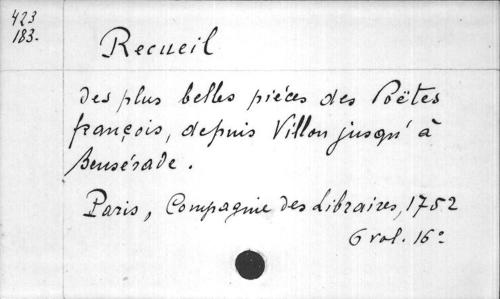 423
183.
Recueil
des plus belles pièces des Poëtes
françois, depuis Villon jusqu'à
Bensérade.
Paris, Compagnie des Libraires, 1752
6 vol. 16°